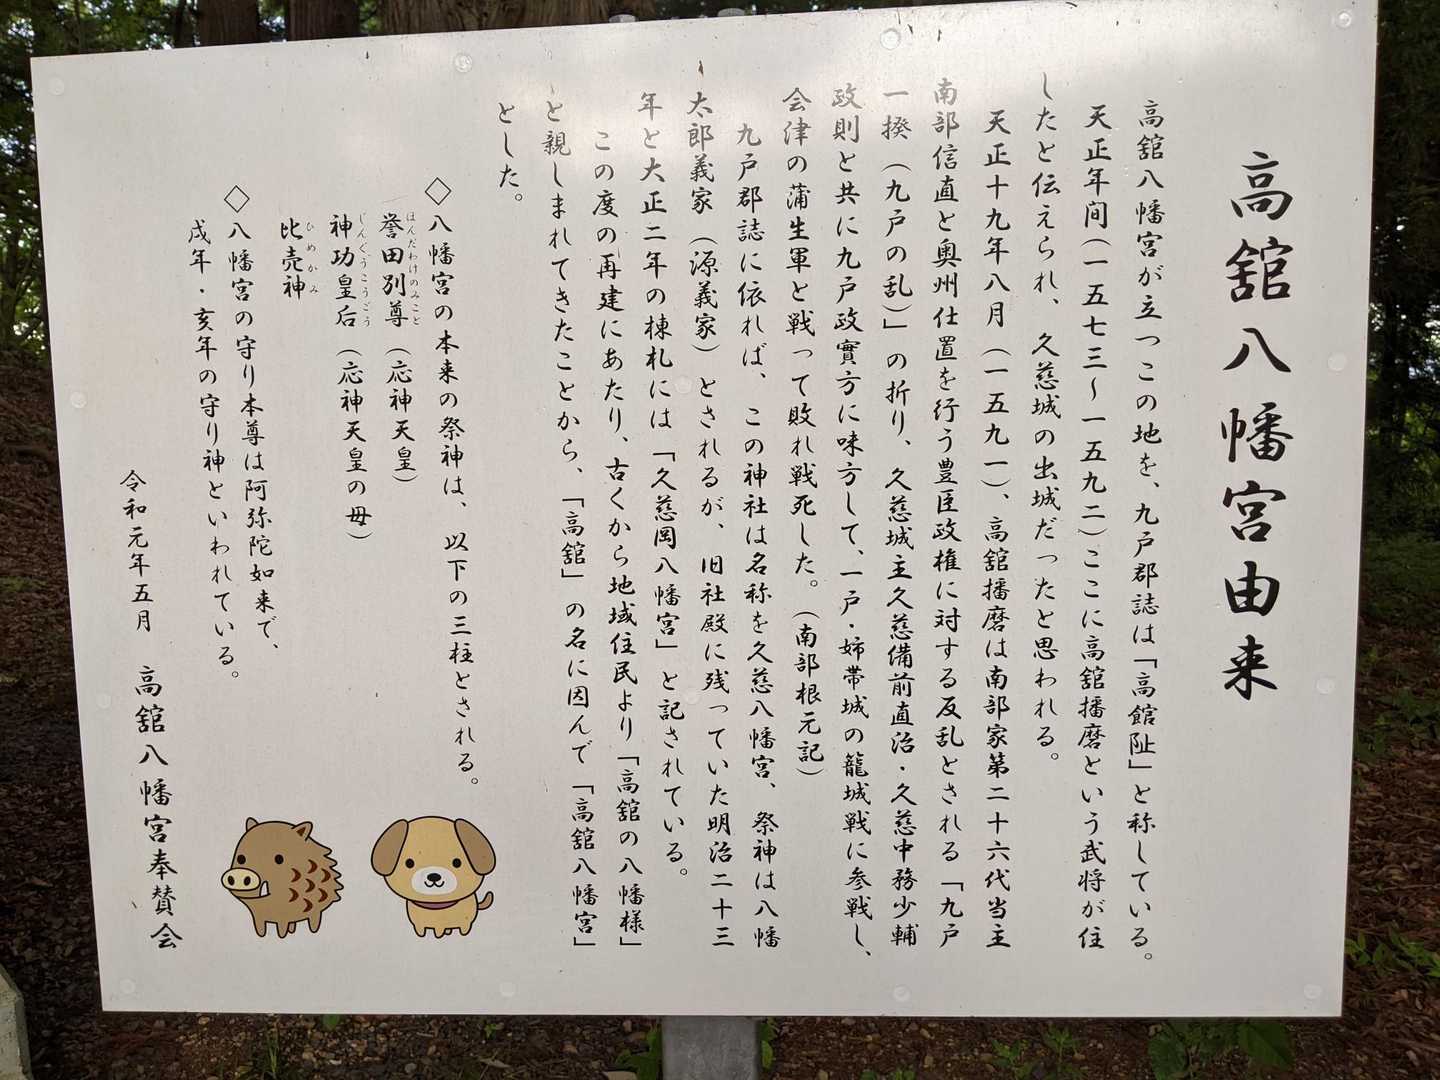 高舘八幡宮由来
高舘八幡宮が立つこの地を、九戸郡誌は「高館阯」と称している。
天正年间(一五七三〜一五九二)ここに高舘播磨という武将が住
したと伝えられ、久慈城の出城だったと思われる。
天正十九年八月(一五九一)、高舘播磨は南部家第二十六代当主
南部信直と奥州仕置を行う豊臣政権に対する反乱とされる「九戸
一揆(九戸の乱)」の折り、久慈城主久慈備前直治・久慈中務少輔
政則と共に九戸政實方に味方して、一戸・姉帯城の籠城戦に参戦し、
会津の蒲生軍と戦って敗れ戦死した。(南部根元記)
九戸郡誌に依れば、この神社は名称を久慈八幡宮、祭神は八幡
太郎義家(源義家)とされるが、旧社殿に残っていた明治二十三
年と大正二年の棟札には「久慈岡八幡宮」と記されている。
この度の再建にあたり、古くから地域住民より「高舘の八幡様」
と親しまれてきたことから、「高舘」の名に因んで「高舘八幡宮」
とした。
◇八幡宮の本来の祭神は、以下の三柱とされる。
誉田別尊(応神天皇)
ほんだわけのみこと
神功皇后(応神天皇の母)
じんぐうこうごう
比売神
ひめかみ
◇八幡宮の守り本尊は阿弥陀如来で、
戌年・亥年の守り神といわれている。
令和元年五月 高舘八幡宮奉賛会